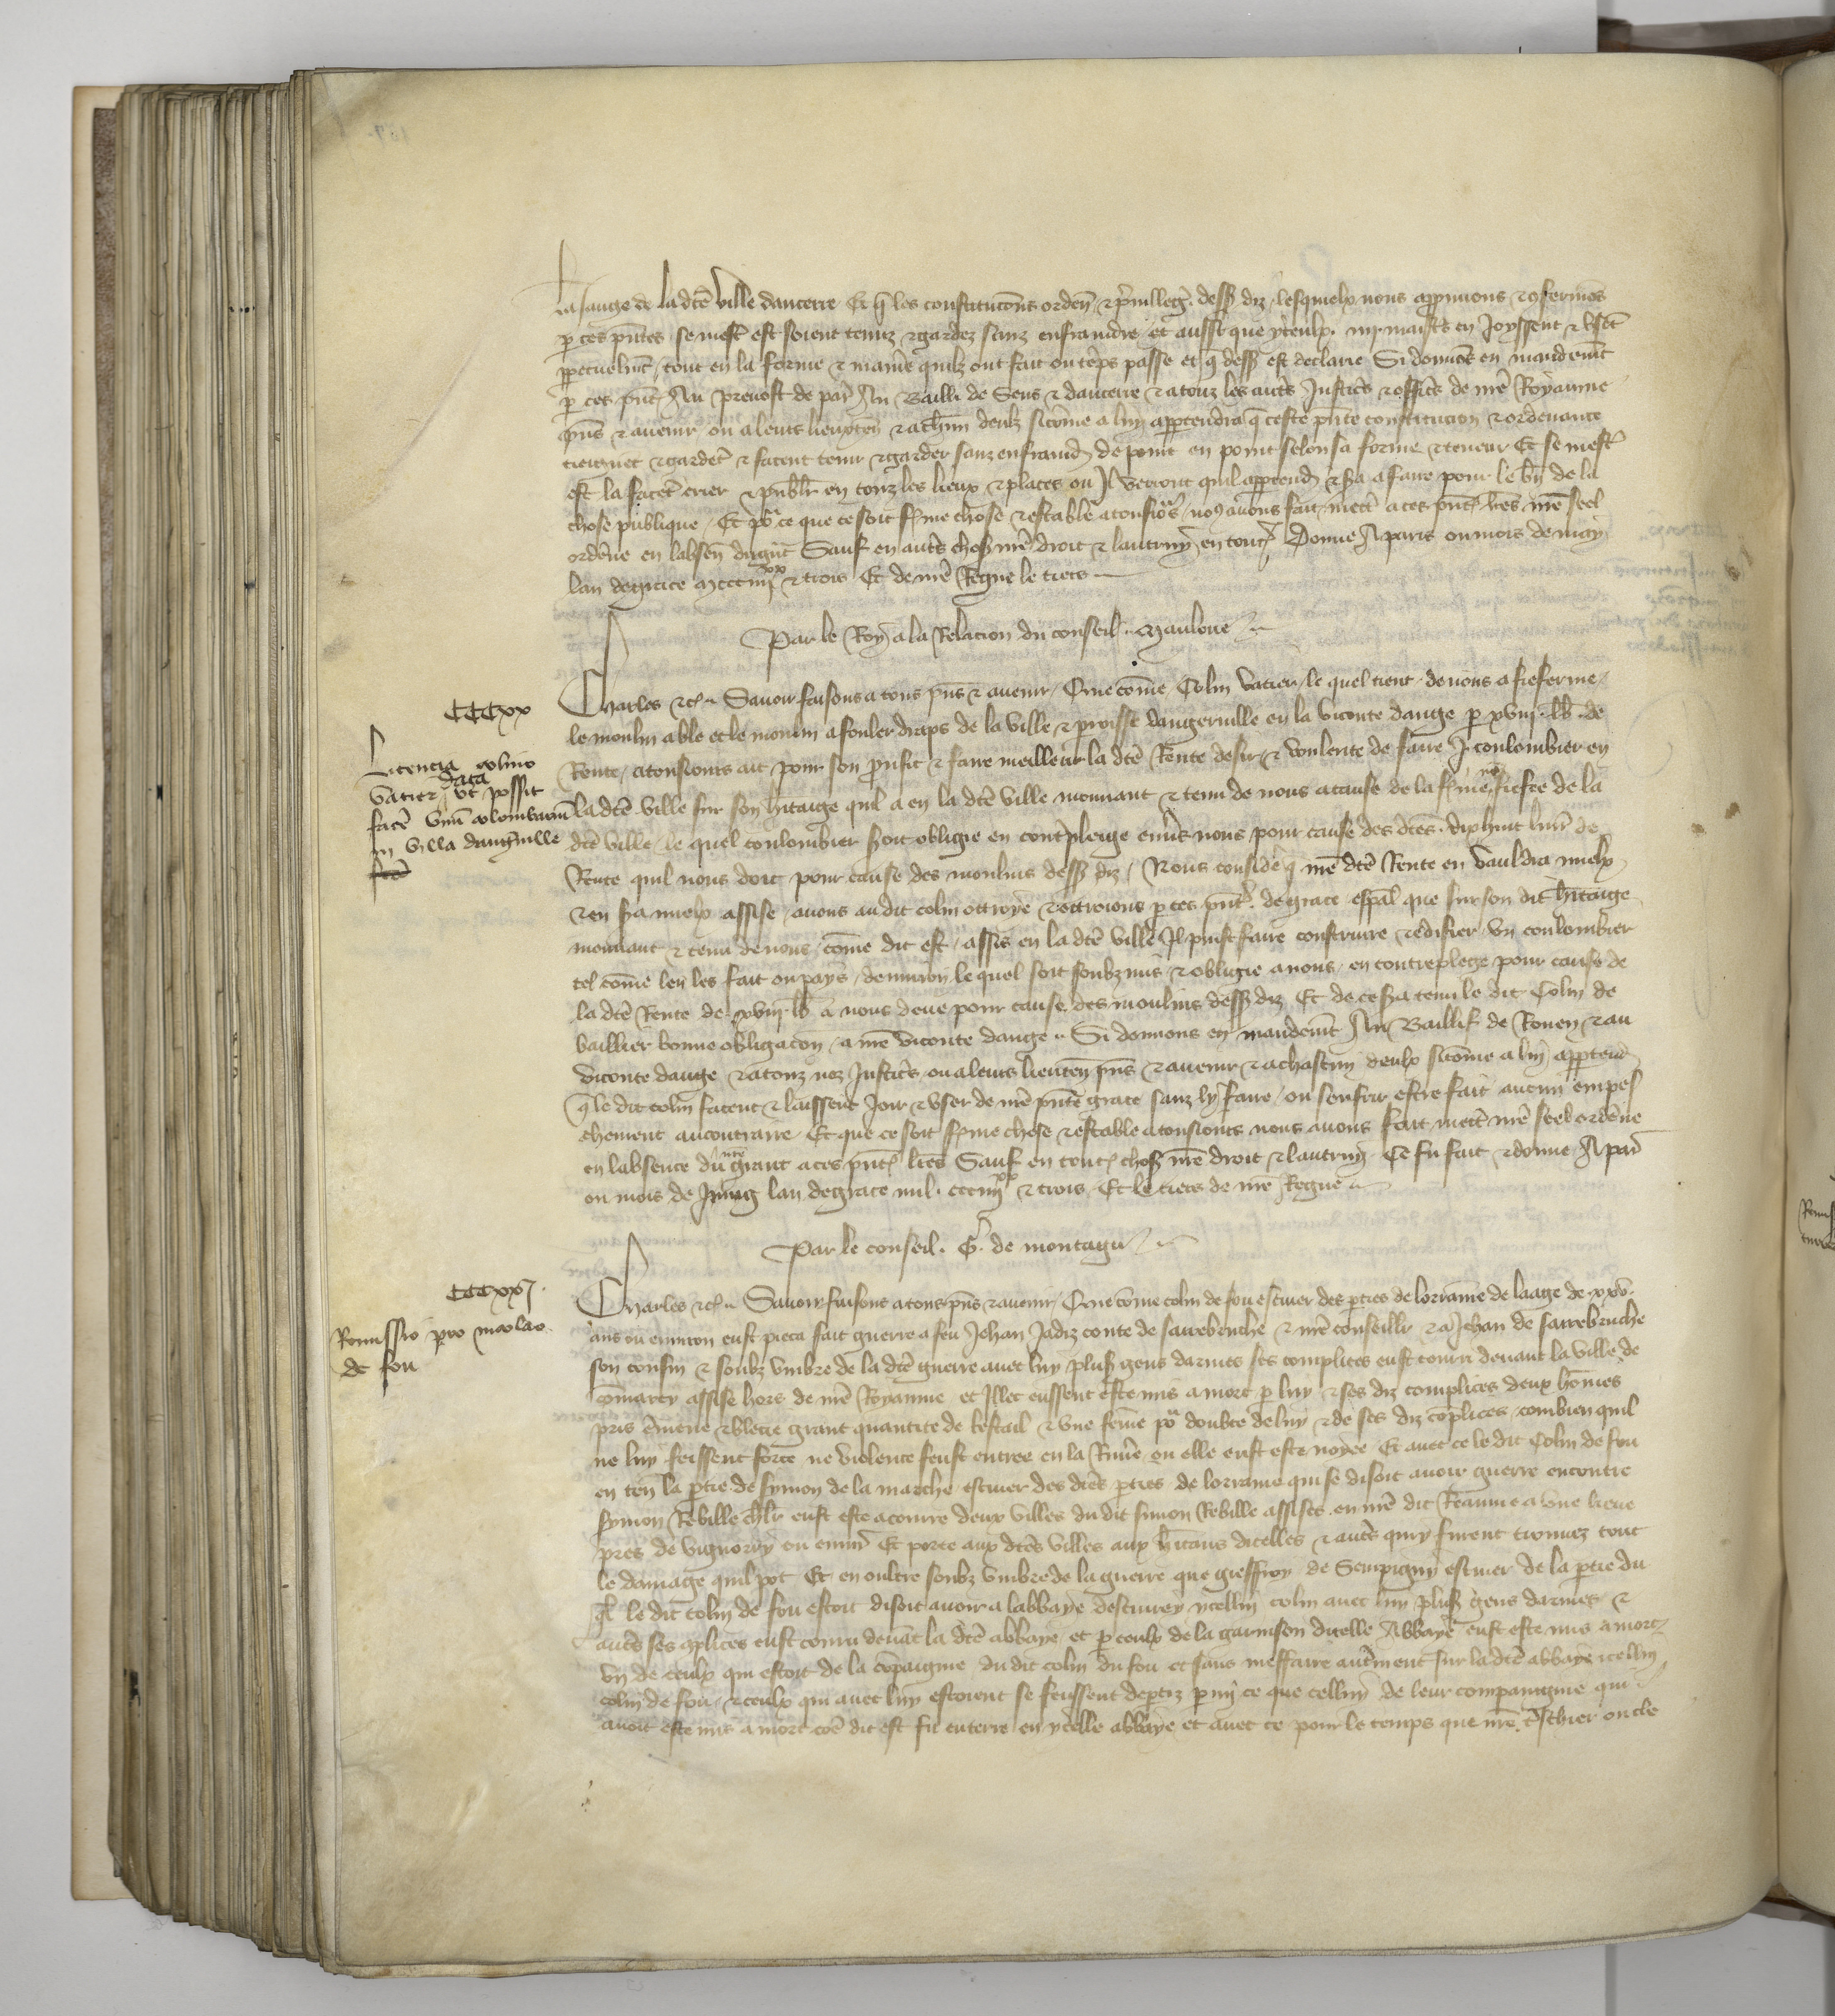 la fauge de ladcē ville daucerre Et q̄ les constitucōns ordeñ ⁊ p̄uilleg̃ dessꝰ diz lesquielx nous approuuons ⁊ ꝯfermōs
p ces pn̄tes se mest̃ est soient tenuz ⁊ gardez sanz enfraindre et aussi que yceulx mr̄ maist̃s en Joyssent ⁊ vsēt
ppetuelmt̄ tout en la forme ⁊ maniē quilz ont fait ou tēps passe et q̄ dessꝰ est declarie Si donnōs en mandemt̄
p ces pn̄t̃ Au preuost de par̃ Au Bailli de Sens ⁊ daucerre ⁊ a touz les aut̃s Justic̃s ⁊ offic̃s de nr̄e Royaume
pn̄s ⁊ auenir ou a leurs lieuxteñ ⁊ a chūn deulx sicōme a luy appartendra q̄ ceste pn̄te constitucion ⁊ ordenance
tieignēt ⁊ gardēt ⁊ facent tenir ⁊ garder sanz enfraind̃ de point en point selon sa forme ⁊ teneur Et se mest̃
est la facēt crier ⁊ publir̃ en touz les lieux ⁊ places ou Jl verront quil apptend̃ ⁊ sera a faire pour le bn̄ de la
chose publique Et po' ce que ce soit f̃me chose ⁊ estable a tousio's noꝰ auons fait mett̃ a ces pn̄t̃ lr̄es nr̄e seel
ordēne en labseñ du gr̄nt Sauf en aut̃s chosꝭ nr̄e droit ⁊ lautruy en tout̃ Donne A paris ou mois de may
lan degrace mccciiij xx ⁊ trois Et de nr̄e Regne le tiers
Par le Roy a la Relacion du conseil Mauloue
CCCxx
Licencia colino
vatier data vt possit
facē vnū colombariū
in villa daugẽville
Charles ⁊cᵃ Sauoir faisons a tous pn̄s ⁊ auenir Que cōme Colin vatier le quel tient de nous a fieferme
le moulin a ble et le moulin a fouler draps de la ville ⁊ proisse daugeruille en la viconte dauge p xviij lb de
Rente a tousiours ait pour son prufit ⁊ faire meilleur la dcē Rente desir ⁊ voulente de faire J coulombier en
ladcē ville sur son hitaige quil a en la dcē ville mouuant ⁊ tenu de nous a cause de la f̃me nr̄e fieffee de la
dcē ville le quel coulombier soit obligie en contrepleige enuers nous pour cause des dcēs dix huit liur̃ de
Rente quil nous doit pour cause des moulins dessꝰ diz Nous considere q̄ nr̄e dcē Rente en vauldra mielx
⁊ en sera mielx assise auons au dit colin ottroye ⁊ ottroions p ces pn̄t̃ de grace esp̄al que sur son dit hitaige
mouuant ⁊ tenu de nous cōme dit est assis en la dcē ville Jl puist faire construire ⁊ edifier vn coulombier
tel cōme len les fait ou pays denuiron le quel soit soubzmis ⁊ obligie a nous en contreplege pour cause de
la dcē Rente de xviij lb a nous deue pour cause des moulins dessꝰ diz Et de ce sera tenu le dit Colin de
baillier bonne obligacōn a nr̄e viconte dauge Si donnons en mandemt̄ Au Baillif de Rouen ⁊ au
viconte dauge ⁊ a touz noz Justic̃s ou a leurs lieuteñ pn̄s ⁊ auenir ⁊ a chascun deulx sicōme a luy apptend̃
q̄ le dit colin facent ⁊ laissent Joir ⁊ vser de nr̄e pn̄te grace sanz ly faire ou souffrir estre fait aucun empes
chement au contraire Et que ce soit f̃me chose ⁊ estable a tousiours nous auons fait mett̃ nr̄e seel ordēne
en labsence du nr̄e grant a ces pn̄t̃ lr̄es Sauf en tout̃ chosꝭ nr̄e droit ⁊ lautruy Ce fu fait ⁊ donne A par̃
ou mois de Juing lan degrace mil ccciiij xx ⁊ trois Et le tiers de nr̄e Regne
Par le conseil G̃ de montagu
CCCxxj
Remissio pro nicolao
de fou
Charles ⁊cᵃ Sauoir faisons a tous pn̄s ⁊ auenir Que cōme colin de fou escuier des pties de lorrainne de laage de xxv
ans ou enuiron eust pieca fait guerre a feu Jehan Jadiz conte de sarrebruche ⁊ nr̄e conseillr̃ ⁊ a Jehan de sarrebruche
son cousin ⁊ soubz vmbre de la dcē guerre auec luy plusꝰ gens darmes ses complices eust couru deuant la ville de
cōmarcy assise hors de nr̄e Royaume et Jllec eussent este mis a mort p luy ⁊ ses diz complices deux hōmes
pris ēmene ⁊ blecie grant quantite de bestail ⁊ vne fēme po' doubte de luy ⁊ de ses diz cōplices combien quil
ne luy feissent force ne violence feust entree en la Riuiē ou elle eust este noyee Et auec ce le dit Colin de fou
en teñ la ptie de symon de la marche escuier des dcēs pties de lorraine qui se disoit auoir guerre encontre
symon Rebille chlr̃ eust este a courre deux villes du dit simon Rebille assises en nr̄e dit Reaume a vne lieue
pres de vignorry ou enuir̃ Et porte aux dcēs villes aux hitans dicelles ⁊ aut̃s qui y furent trouuez tout
le damage quil pot Et en oultre soubz vmbre de la guerre que gieffroy de Sempigny escuier de la ptie du
q̄l le dit colin de fou estoit disoit auoir a labbaye descurey ycellui colin auec luy plusꝰ gens darmes ⁊
aut̃s ses ꝯplices eust couru deuāt la dcē abbaye et p ceulx de la garnison dicelle Abbaye eust este mis a mort
vn de ceulx qui estoit de la cōpaignie du dit colin du fou et sans meffaire aut̃ment sur la dcē abbaye icellui
colin de fou ⁊ ceulx qui auec luy estoient se feussent deptiz pmy ce que cellui de leur compaignie qui
auoit este mis a mort cōe dit est fu enterre en ycelle abbaye et auec ce pour le temps que nr̄e Ithier oncle